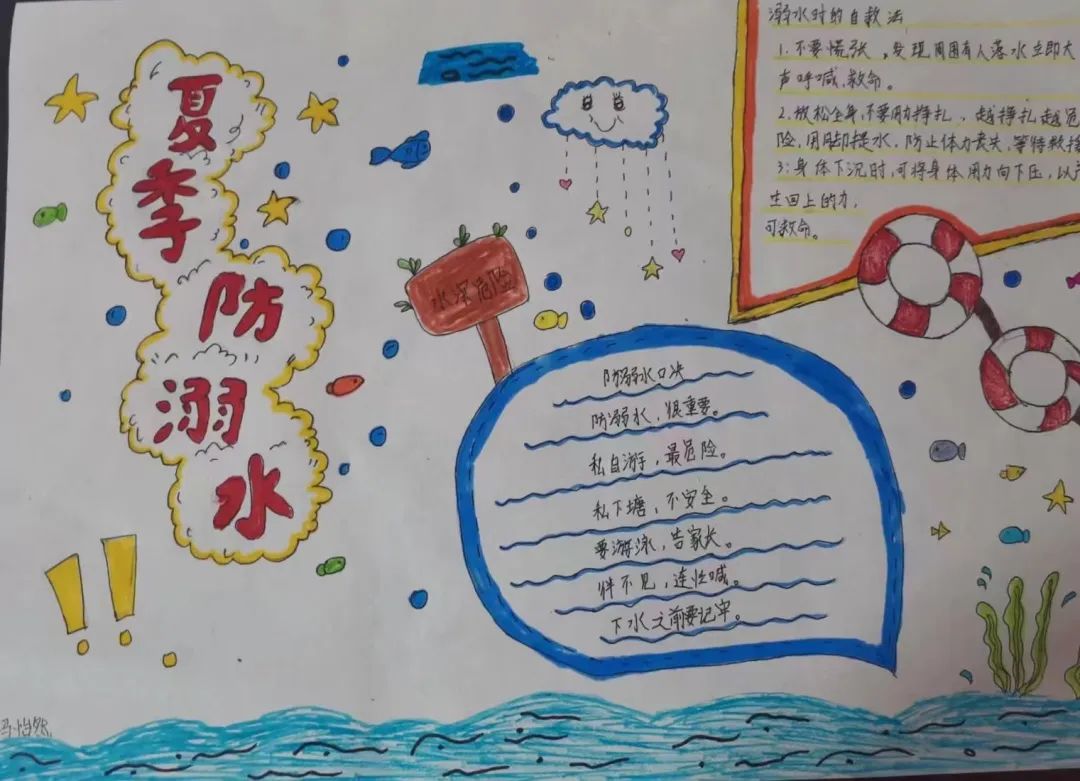 夏季防溺水
水深危险
溺水时的自救法
1. 不要慌张，发现周围有人落水立即大
声呼喊，救命。
2. 放松全身，不要用力挣扎，越挣扎越危
险，用脚提水，防止体力丧失，等待救援
3: 身体下沉时，可将身体用力向下压，以产
生回上的力，
可救命。
防溺水口决
防溺水，很重要。
私自游，最危险。
私下塘，不安全。
要游泳，告家长。
伴不见，连忙喊。
下水之前要记牢。
冯怡然